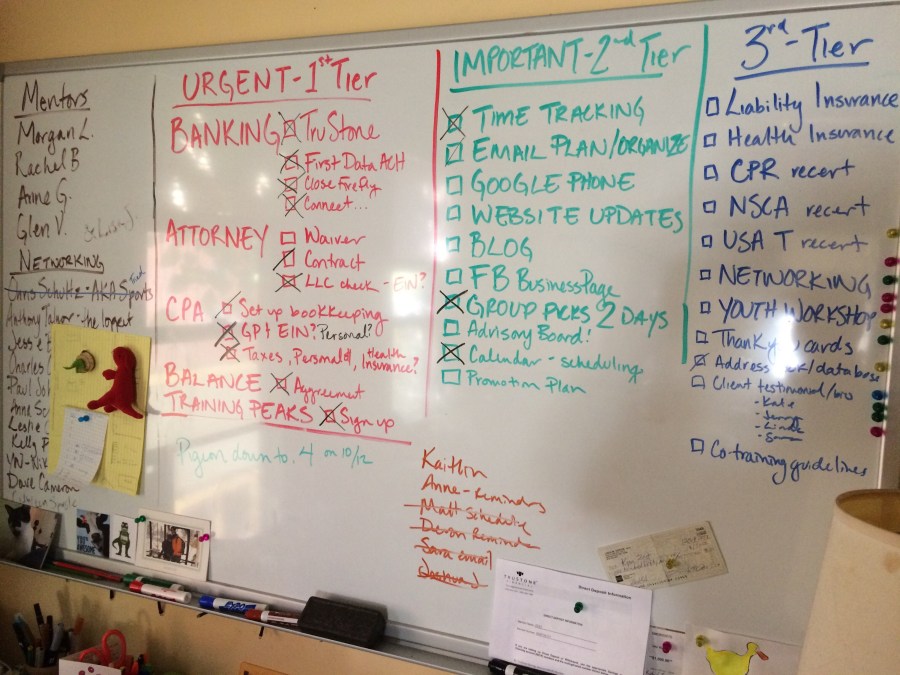 Mentors
Morgan L.
Rachel B
Anne G.
Glen V.
NETWORKING
Chris Schultz - AKA Sports
Anthony - the longest
Jessie
Charles
Paul
Anne
Leslie
Kelly P
Dave Cameron
URGENT - 1st Tier
BANKING TruStone
First Data ACH
Close Firefly
Connect...
ATTORNEY Waiver
Contract
LLC check - EIN?
CPA Set up bookkeeping
GP & EIN? Personal?
Taxes, Personal, Health Insurance?
BALANCE Aggreement
TRAINING PEAKS Sign up
Pigeon down to 4 on 10/12
IMPORTANT - 2nd Tier
TIME TRACKING
EMAIL PLAN/ORGANIZE
GOOGLE PHONE
WEBSITE UPDATES
BLOG
FB Business Page
GROUP PCKS 2 DAYS
Advisory Board!
Calendar - scheduling
Promotion Plan
Kaitlin
Anne - Reminders
Matt Schedule
Devon Reminder
Sara email
Joshua
3rd - Tier
Liability Insurance
Health Insurance
CPR recert
NSCA recert
USAT recert
NETWORKING
YOUTH WORKSHOP
Thank you cards
Address /database
Client testimonial/bio
- Kate
- Jenny
- Linda
Co-training guidelines
TRUSTONE
EXPO